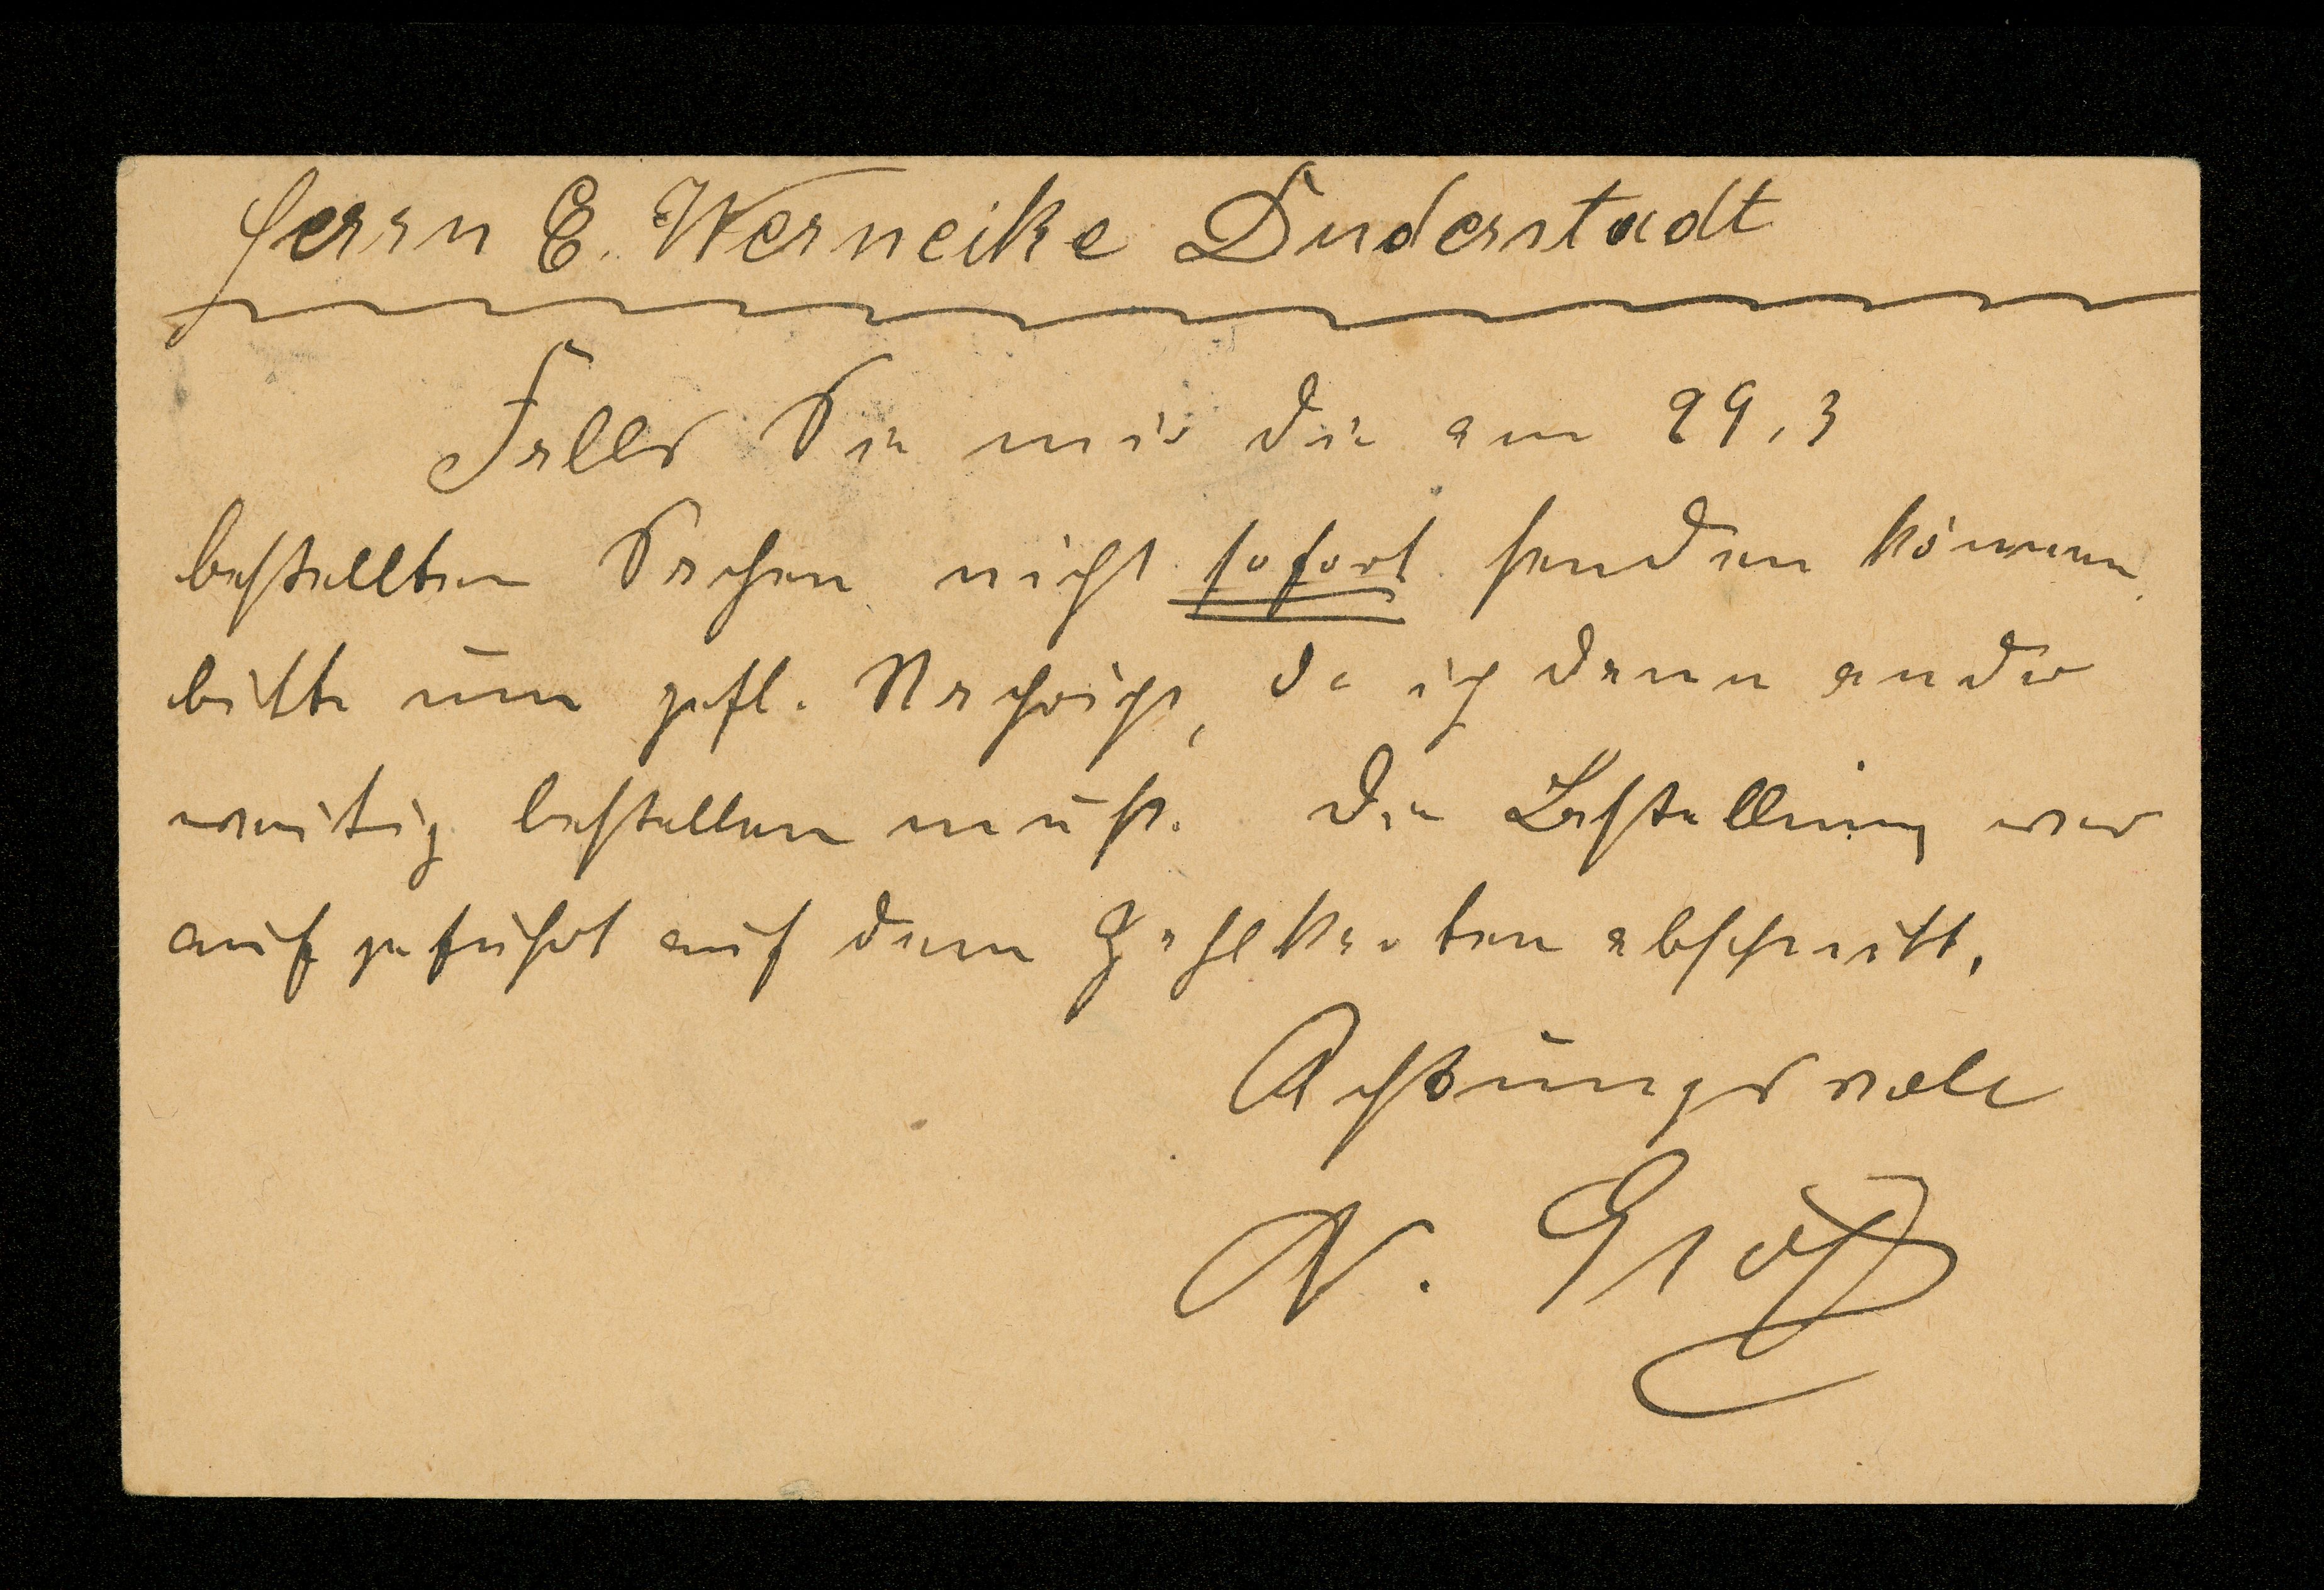 Herrn E. Werneike Duderstadt
Falls Sie mir die am 29.3
bestellten Sachen nicht sofort senden können,
bitte um gefl. Nachricht, da ich dann ander
weitig bestellen muß. Die Bestellung war
auf geführt auf dem Zahlkarten abschnitt.
Achtungsvoll
N.